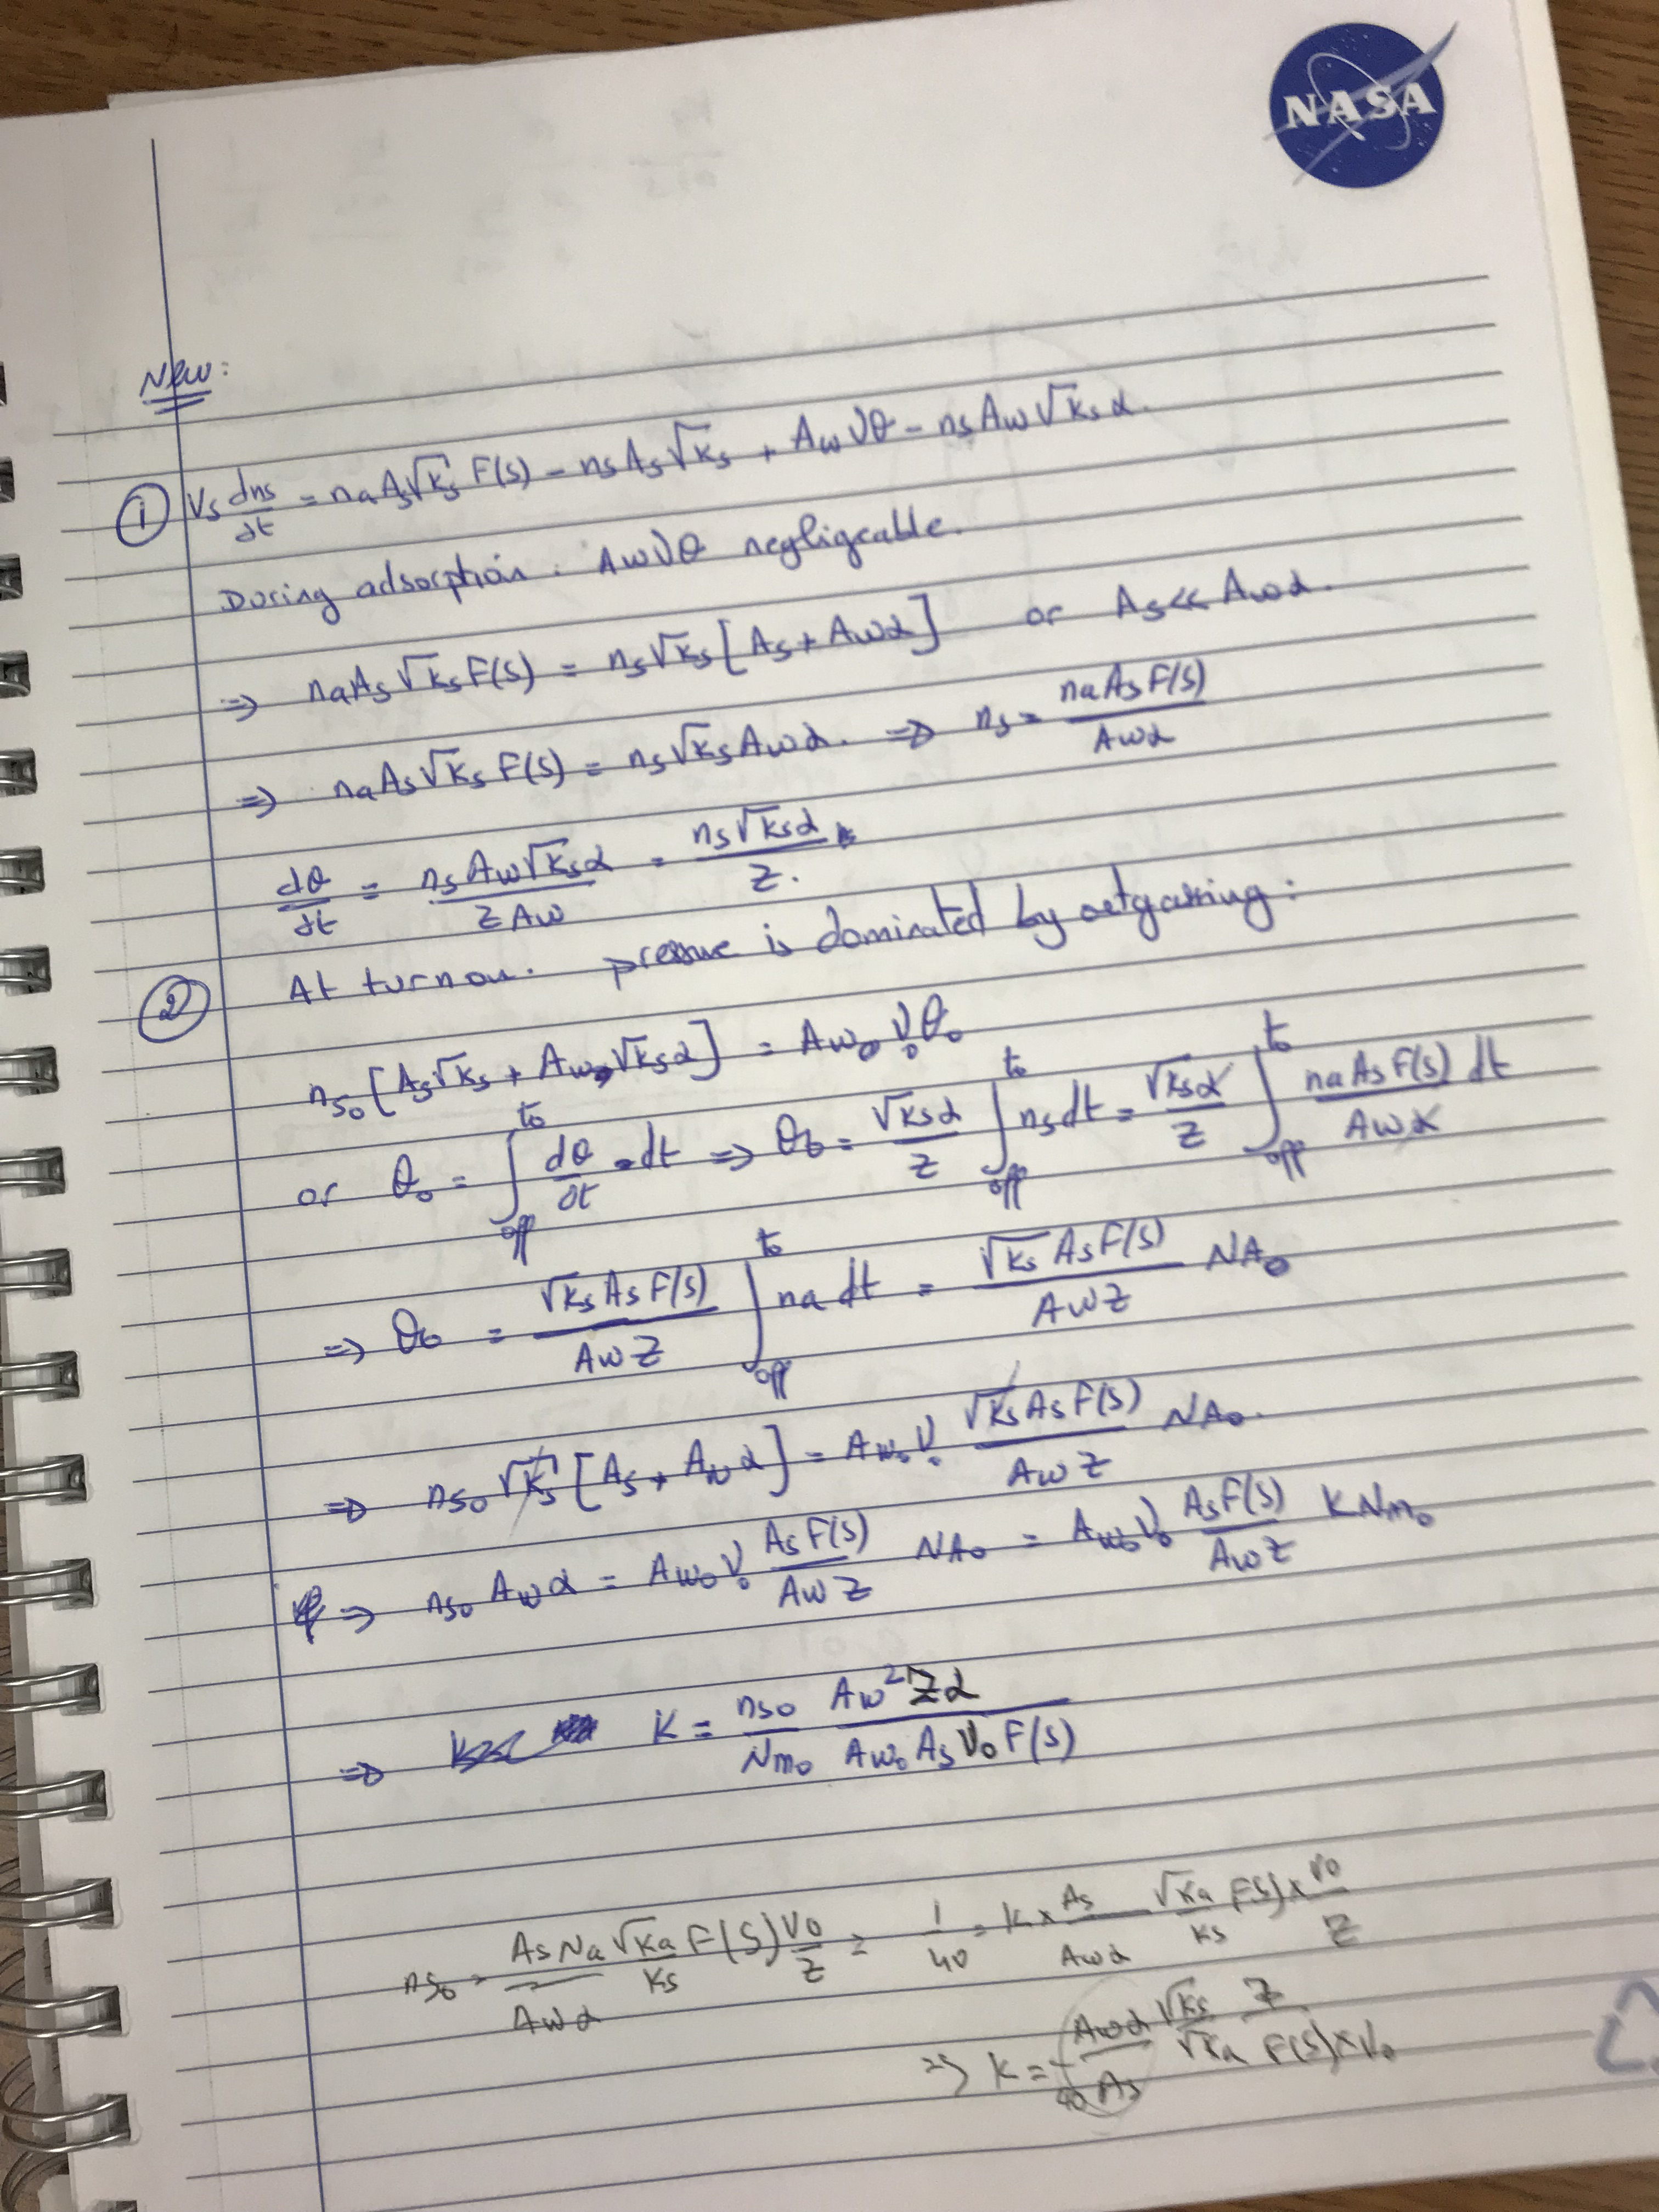 NASA
New:
① Vs dns/dt = na As √ks F(S) - ns As √ks + Aw ν θ - ns Aw √ks α.
During adsorption. Aw ν θ negligeable.
⇒ na As √ks F(S) = ns √ks [As + Aw α] or As << Aw α.
⇒ na As √ks F(S) = ns √ks Aw α. ⇒ ns = na As F(S) / Aw α
dθ/dt = ns Aw √ks α / Z Aw = ns √ks α / Z.
② At turn on. pressure is dominated by outgassing:
ns0 [As √ks + Aw0 √ks α] = Aw0 ν0 θ0
or θ0 = ∫off^t0 dθ/dt dt ⇒ θ0 = √ks α / Z ∫off^t0 ns dt = √ks α / Z ∫off^t0 na As F(S) / Aw α dt
⇒ θ0 = √ks As F(S) / Aw Z ∫off^t0 na dt = √ks As F(S) / Aw Z NA0
⇒ ns0 √ks [As + Aw α] = Aw0 ν0 √ks As F(S) / Aw Z NA0.
⇒ ns0 Aw α = Aw0 ν0 As F(S) / Aw Z NA0 = Aw0 ν0 As F(S) / Aw Z K Nm0
⇒ K = ns0 / Nm0 Aw² Z α / Aw0 As ν0 F(S)
ns0 = As Na / Aw α √Ka / Ks F(S) ν0 / Z = 1/40 = K × As / Aw α √Ka / Ks F(S) × ν0 / Z
⇒ K = Aw α / 40 As √Ks / √Ka Z / F(S) × ν0